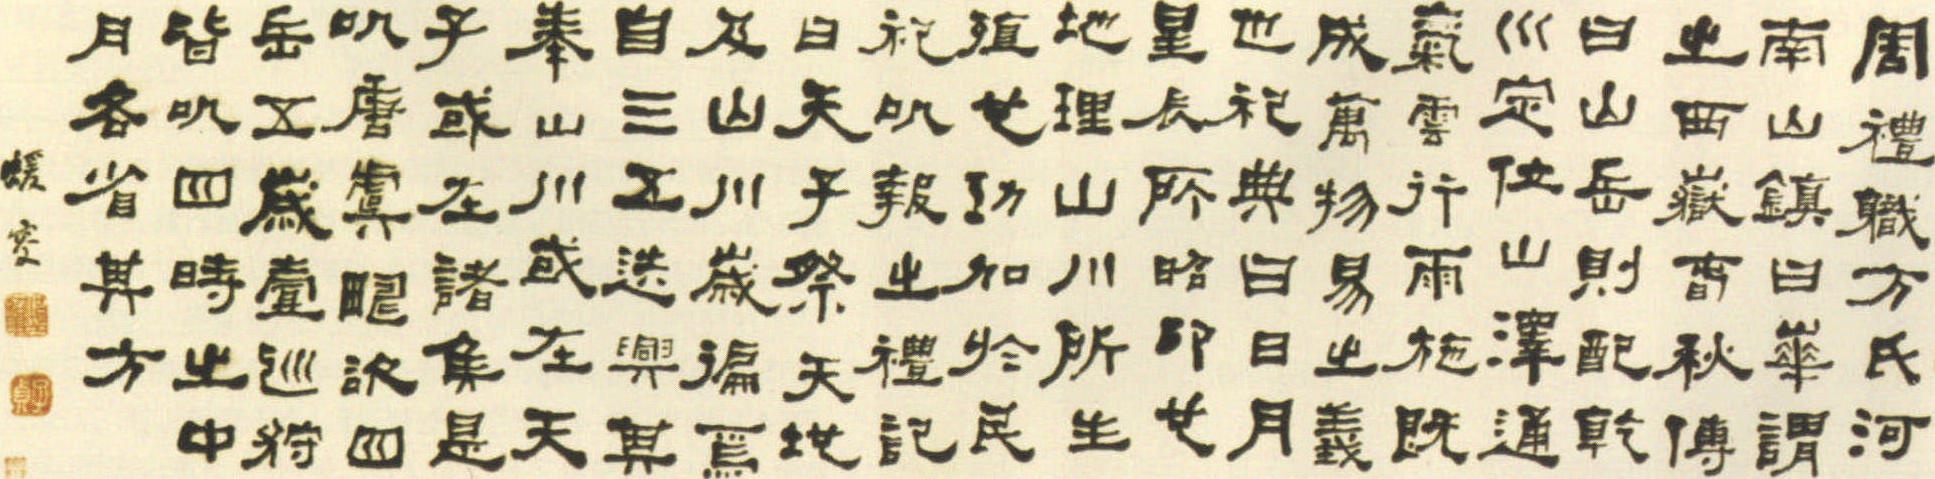 周禮職方氏河
南山鎮曰華謂
之西嶽春秋傳
曰山岳則配乾
巛定位山澤通
氣雲行雨施既
成萬物易之義
也祀典曰日月
星辰所昭卬也
地理山川所生
殖也功加於民
祀以報之禮記
曰天子祭天地
及山川歲徧焉
自三五迭興其
奉山川或在天
子或在諸侯是
以唐虞疇咨四
岳五歲壹巡狩
皆以四時之中
月各省其方
蝯叟